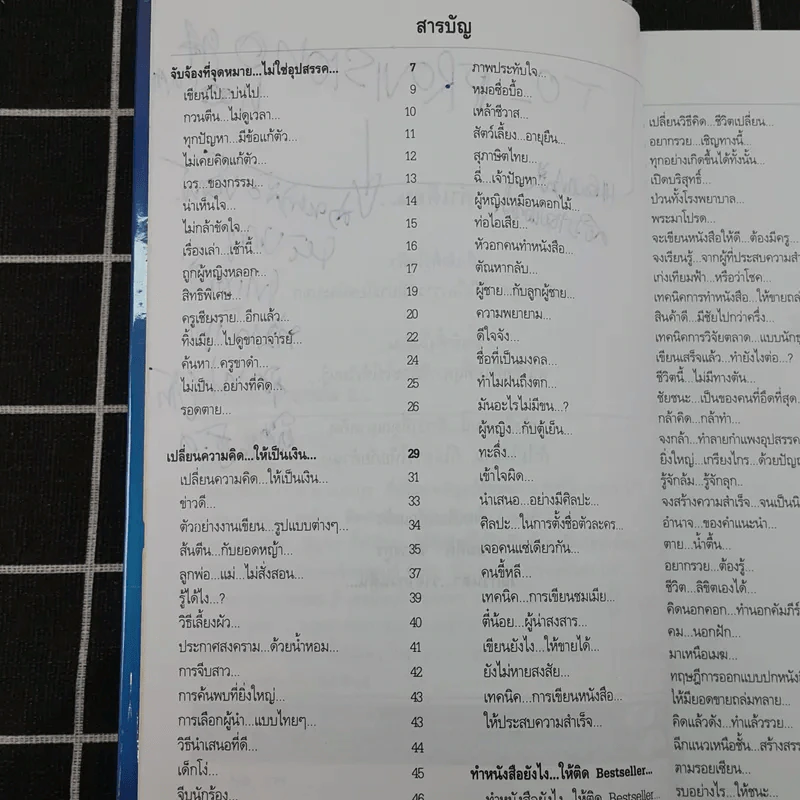 สารบัญ
จับจ้องที่จุดหมาย...ไม่ใช่อุปสรรค... 7
เขียนไป...บ่นไป... 9
กวนตีน...ไม่ดูเวลา... 10
ทุกปัญหา...มีข้อแก้ตัว... 11
ไม่เคยคิดแก้ตัว... 12
เวร...ของกรรม... 13
น่าเห็นใจ... 14
ไม่กล้าขัดใจ... 15
เรื่องเล่า...เช้านี้... 16
ถูกผู้หญิงหลอก... 17
สิทธิพิเศษ... 19
ครูเชียงราย...อีกแล้ว... 20
ทิ้งเมีย...ไปดูขาอาจารย์... 22
ค้นหา...ครูขาดำ... 24
ไม่เป็น...อย่างที่คิด... 25
รอดตาย... 26
เปลี่ยนความคิด...ให้เป็นเงิน... 29
เปลี่ยนความคิด...ให้เป็นเงิน... 31
ข่าวดี... 33
ตัวอย่างงานเขียน...รูปแบบต่างๆ... 34
ส้นตีน...กับยอดหญ้า... 35
ลูกพ่อ...แม่...ไม่สั่งสอน... 37
รู้ได้ไง...? 39
วิธีเลี้ยงผัว... 40
ประกาศสงคราม...ด้วยน้ำหอม... 41
การจีบสาว... 42
การค้นพบที่ยิ่งใหญ่... 43
การเลือกผู้นำ...แบบไทยๆ... 43
วิธีนำเสนอที่ดี... 44
เด็กโง่... 45
จีบนักร้อง... 46
ภาพประทับใจ...
หมอซื่อบื้อ...
เหล้าชีวาส...
สัตว์เลี้ยง...อายุยืน...
สุภาษิตไทย...
ฉี่...เจ้าปัญหา...
ผู้หญิงเหมือนดอกไม้...
ท่อไอเสีย...
หัวอกคนทำหนังสือ...
ตัณหากลับ...
ผู้ชาย...กับลูกผู้ชาย...
ความพยายาม...
ดีใจจัง...
ชื่อที่เป็นมงคล...
ทำไมฝนถึงตก...
มันอะไรไม่มีขน...?
ผู้หญิง...กับตู้เย็น...
ทะลึ่ง...
เข้าใจผิด...
นำเสนอ...อย่างมีศิลปะ...
ศิลปะ...ในการตั้งชื่อตัวละคร...
เจอคนแซ่เดียวกัน...
คนขี้หลี...
เทคนิค...การเขียนชมเมีย...
ตี๋น้อย...ผู้น่าสงสาร...
เขียนยังไง...ให้ขายได้...
ยังไม่หายสงสัย...
เทคนิค...การเขียนหนังสือ...
ให้ประสบความสำเร็จ...
ทำหนังสือยังไง...ให้ติด Bestseller...
ทำหนังสือยังไง...ให้ติด Bestseller...
เปลี่ยนวิธีคิด...ชีวิตเปลี่ยน...
อยากรวย...เชิญทางนี้...
ทุกอย่างเกิดขึ้นได้ทั้งนั้น...
เปิดบริสุทธิ์...
ป่วนทั้งโรงพยาบาล...
พระมาโปรด...
จะเขียนหนังสือให้ดี...ต้องมีครู...
จงเรียนรู้...จากผู้ที่ประสบความสำ
เก่งเทียมฟ้า...หรือว่าโชค...
เทคนิคการทำหนังสือ...ให้ขายถล่
สินค้าดี...มีชัยไปกว่าครึ่ง...
เทคนิคการวิจัยตลาด...แบบนักธุ
เขียนเสร็จแล้ว...ทำยังไงต่อ...?
ชีวิตนี้...ไม่มีทางตัน...
ชัยชนะ...เป็นของคนที่อึดที่สุด...
กล้าคิด...กล้าทำ...
จงกล้า...ทำลายกำแพงอุปสรรค
ยิ่งใหญ่...เกรียงไกร...ด้วยปัญ
รู้จักล้ม...รู้จักลุก...
จงสร้างความสำเร็จ...จนเป็นนิ
อำนาจ...ของคำแนะนำ...
ตาย...น้ำตื้น...
อยากรวย...ต้องรู้...
ชีวิต...ลิขิตเองได้...
คิดนอกคอก...ทำนอกคัมภีร์
คม...นอกฝัก...
มาเหนือเมฆ...
ทฤษฎีการออกแบบปกหนังสื
ให้มียอดขายถล่มทลาย...
คิดแล้วดัง...ทำแล้วรวย...
ฉีกแนวเหนือชั้น...สร้างสรร
ตามรอยเซียน...
รบอย่างไร...ให้ชนะ...